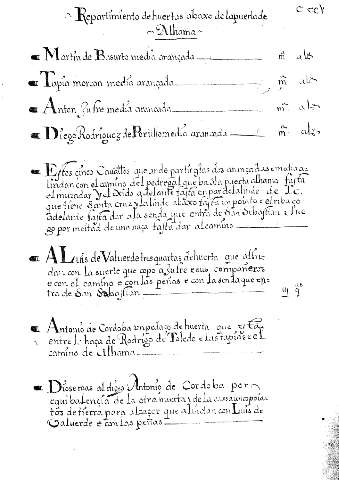 Repartimiento de huertas abaxo de la puerta de
Alhama
Martin de Basurto media arançada
Tapia merson media arançada
Anton Jufre media arancada
Diego Rodriguez de media arancada
Estos cinco que an de partir estas dos arançadas
lindan con el camino del pedregal que baxa puerta alhama fasta
el muradar y el exido adelante fasta en par del alinde de
que tiene Santa Cruz y alinde abaxo fasta un pozuelo e el ribaço
adelante fasta dar a la senda que entra de San Sebastian e lue
go por mitad de una haça fasta dar al camino
A Luis de Valuerde tres quartas de huerta que alin
dan con la suerte que copo a Jufre e sus compañeros
e con el camino e con las peñas e con la senda que en
tra de San Sebastian
Antonio de Cordoba un pedaço de huerta que esta
entre la haça de Rodrigo de Toledo e las tapias e el
camino de Alhama
Diose mas al dicho Antonio de Cordoba por
equibalencia de la otra huerta de la
de tierra para alcaçer que alindan con Luis de
Valuerde e con las peñas